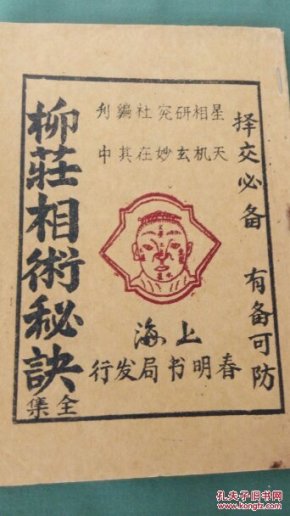 择交必备 有备可防
星相研究社编刋
天机玄妙在其中
上海
春明书局发行
柳莊相術秘訣
全集
孔夫子旧书网